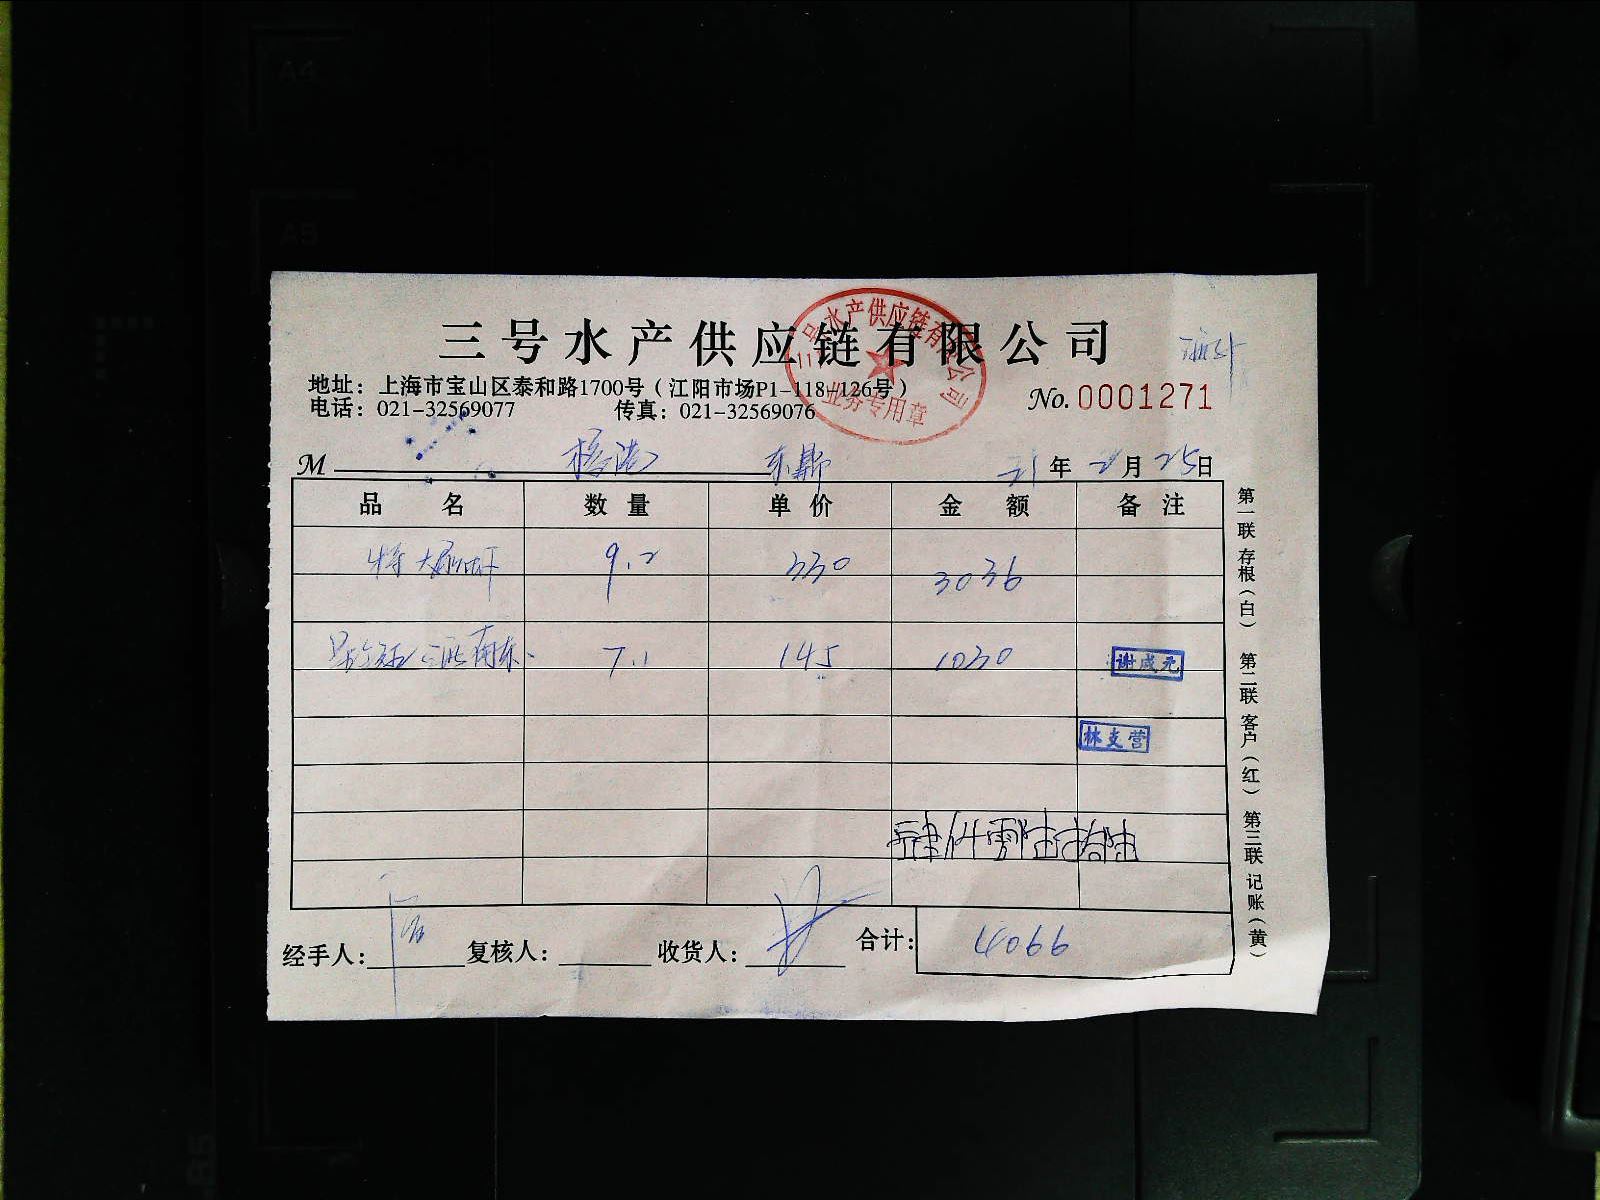 三号水产供应链有限公司
三号水产供应链有限公司
业务专用章
地址：上海市宝山区泰和路1700号（江阳市场P1-118-126号）
No.0001271
电话：021-32569077 传真：021-32569076
M 21年2月25日
品名 数量 单价 金额 备注
特大 9.2 330 3036
7.1 145 1030 谢成元
林支营
肆仟零陆拾陆
经手人： 复核人： 收货人： 合计： 4066
第一联 存根（白） 第二联 客户（红） 第三联 记账（黄）
A4
A5